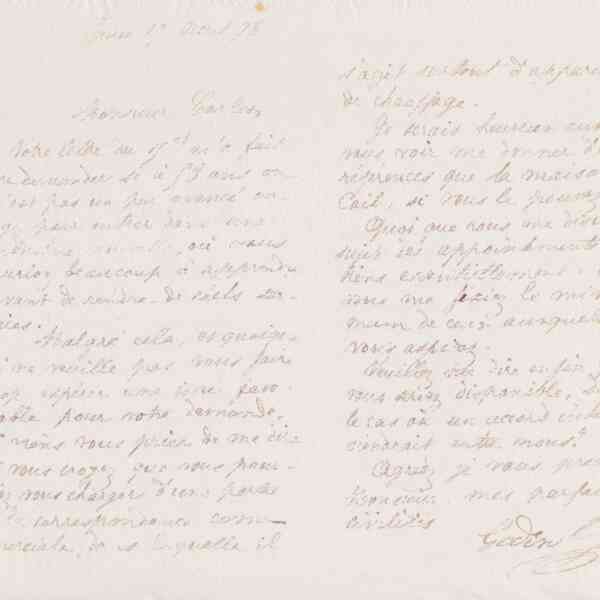 Monsieur
Votre lettre du 9 ct m'a fait
demander si à 58 ans on
n'est pas un peu avancé en
âge pour entrer dans une
où vous
auriez beaucoup à apprendre
avant de rendre de réels ser-
vices.
Malgré cela, et quoique
je ne veuille pas vous faire
trop espérer une issue favo-
rable pour votre demande,
je viens vous prier de me dire
si vous croyez que vous pour-
riez vous charger d'une partie
de correspondance comm-
erciale, dans laquelle il
s'agit surtout d'appareils
de chauffage.
Je serais heureux aussi
de vous voir me donner d'
références que la maison
Cail, si vous le pouvez.
Quoi que vous me disiez
sujet des appointements
tiens essentiellement
vous me fixiez le mini
mum de ceux auxquels
vous aspirez.
Veuillez me dire enfin
vous seriez disponible, d
le cas où un accord inter
viendrait entre nous.
Agréez je vous prie
Monsieur, mes parfaites
civilités
Godin